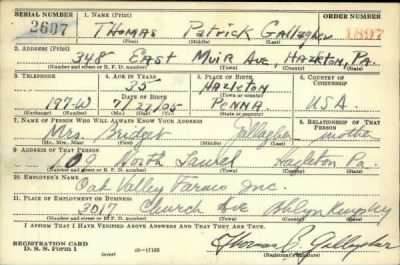 SERIAL NUMBER 1. NAME (Print) ORDER NUMBER
2607 THOMAS PATRICK GALLAGHER 1897
(First) (Middle) (Last)
2. ADDRESS (Print)
348 EAST MUIR AVE, HAZLETON, PA.
(Number and street or R. F. D. number) (Town) (County) (State)
3. TELEPHONE 4. AGE IN YEARS 5. PLACE OF BIRTH 6. COUNTRY OF CITIZENSHIP
35 HAZLETON
DATE OF BIRTH (Town or county)
197-W 7/27/05 PENNA U.S.A.
(Exchange) (Number) (Mo.) (Day) (Yr.) (State or country)
7. NAME OF PERSON WHO WILL ALWAYS KNOW YOUR ADDRESS 8. RELATIONSHIP OF THAT PERSON
Mrs. Bridget Gallagher mother
(Mr., Mrs., Miss) (First) (Middle) (Last)
9. ADDRESS OF THAT PERSON
109 South Laurel Hazleton Pa.
(Number and street or R. F. D. number) (Town) (County) (State)
10. EMPLOYER'S NAME
Oak Valley Farms Inc.
11. PLACE OF EMPLOYMENT OR BUSINESS
3017 Church Ave
(Number and street or R. F. D. number) (Town) (County) (State)
I AFFIRM THAT I HAVE VERIFIED ABOVE ANSWERS AND THAT THEY ARE TRUE.
REGISTRATION CARD
D. S. S. Form 1 (over) 16-17105 Thomas P. Gallagher
(Registrant's signature)